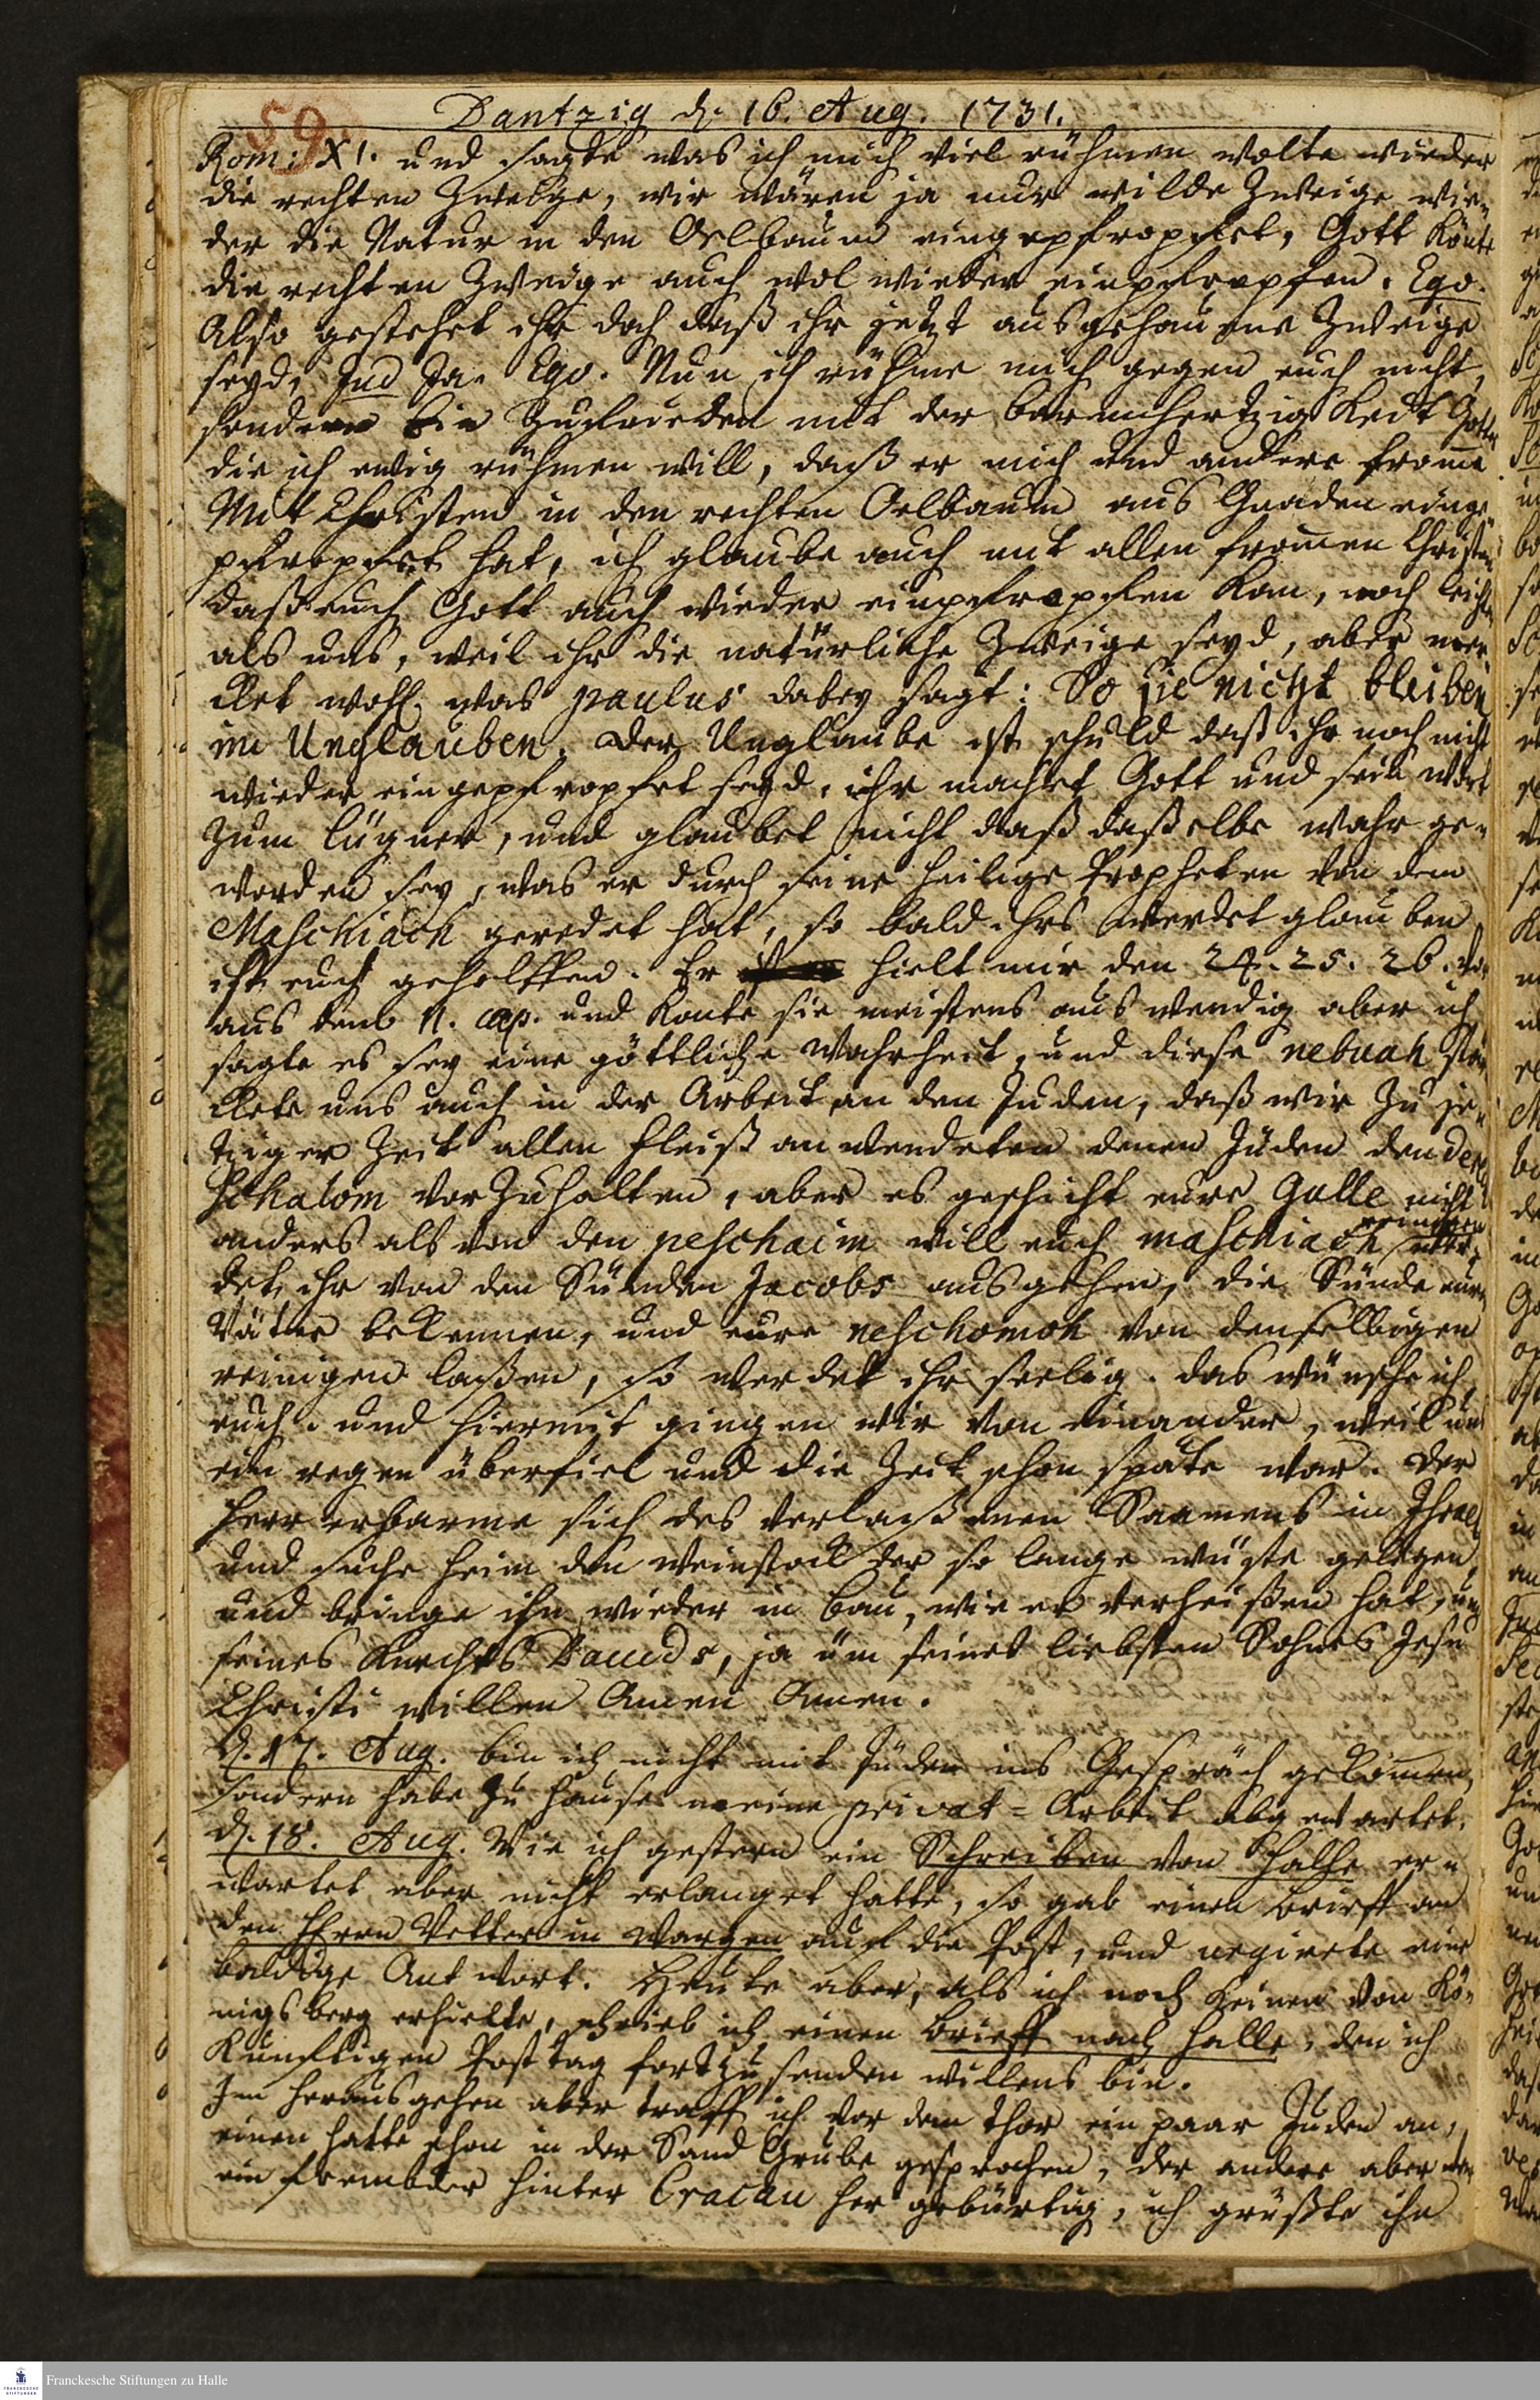 59.
Dantzig d. 16. Aug. 1731.
Rom: XI. und sagte was ich mich viel rühmen wolte wieder
die rechten Zweige, wir wären ja nur wilde Zweige wie-
der die Natur in den Oelbaum eingepfropffet, Gott könte
die rechten Zweige auch wol wieder einpfropfen. Ego.
Also gestehet ihr doch daß ihr jetzt ausgehauene Zweige
seyd, Jud Ja. Ego. Nun ich rühme mich gegen euch nicht,
sondern bin zufrieden mit der barmhertzigkeit Gottes
die ich ewig rühmen will, daß er mich und andere fromme
Mit Christen in den rechten Oelbaum aus Gnaden einge-
pfropfet hat, ich glaube auch mit allen frommen Christen
daß euch Gott auch wieder einpfropffen kan, noch leichter
als uns, weil ihr die natürliche Zweige seyd, aber mer-
cket wohl was paulus dabey sagt: So sie nicht bleiben
im Unglauben. Der Unglaube ist schuld daß ihr noch nicht
wieder eingepfropfet seyd, ihr machet Gott und sein wort
zum lügner, und glaubet nicht daß daßelbe wahr ge-
worden sey, was er durch seine heilige Propheten von dem
Maschiach geredet hat, so bald ihrs werdet glauben
ist euch geholffen. Er hielt mir den 24. 25. 26. v.
aus dem 11. cap. und konte sie meistens auswendig aber ich
sagte es sey eine göttliche Wahrheit, und diese nebuah stär-
ckete uns auch in der Arbeit an den Juden, daß wir zu je-
tziger Zeit allen fleiß anwendeten denen Juden den derech
Schalom vorzuhalten, aber es geschicht eure Gulle nicht
anders als von den peschaim will euch maschiach reinigen wer-
det ihr von den Sünden Jacobs ausgehen, die Sünde eurer
Väter bekennen, und eure neschomoh von denselbigen
reinigen laßen, so werdet ihr seelig. das wünsche ich
euch. und hiermit gingen wir von einander, weil uns
ein regen überfiel und die Zeit schon späte war. Der
Herr erbarme sich des verlaßenen Saamens in Israel
und suche heim den weinstock der so lange wüste gelegen,
und bringe ihn wieder in bau, wie er verheißen hat, um
seines Knechts Davids, ja um seines liebsten Sohnes Jesu
Christi willen Amen Amen.
d. 17. Aug. bin ich nicht mit Juden ins Gespräch gekommen,
sondern habe zu Hause meine privat-Arbeit abgewartet.
d. 18. Aug. Wie ich gestern ein Schreiben von Halle er-
wartet aber nicht erlanget hatte, so gab einen brieff an
den Herrn Vetter in Wargen auf die Post, und urgirete eine
baldige Antwort. Heute aber, als ich noch keinen von Kö-
nigsberg erhielte, schrieb ich einen brieff nach Halle, den ich
künfftigen Posttag fortzusenden willens bin.
Im herausgehen aber traff ich vor dem Thor ein paar Juden an,
einen hatte schon in der Sand Grube gesprochen, der andere aber war
ein frembder hinter Cracau her gebürtig, ich grüßte ihn
Franckesche Stiftungen zu Halle